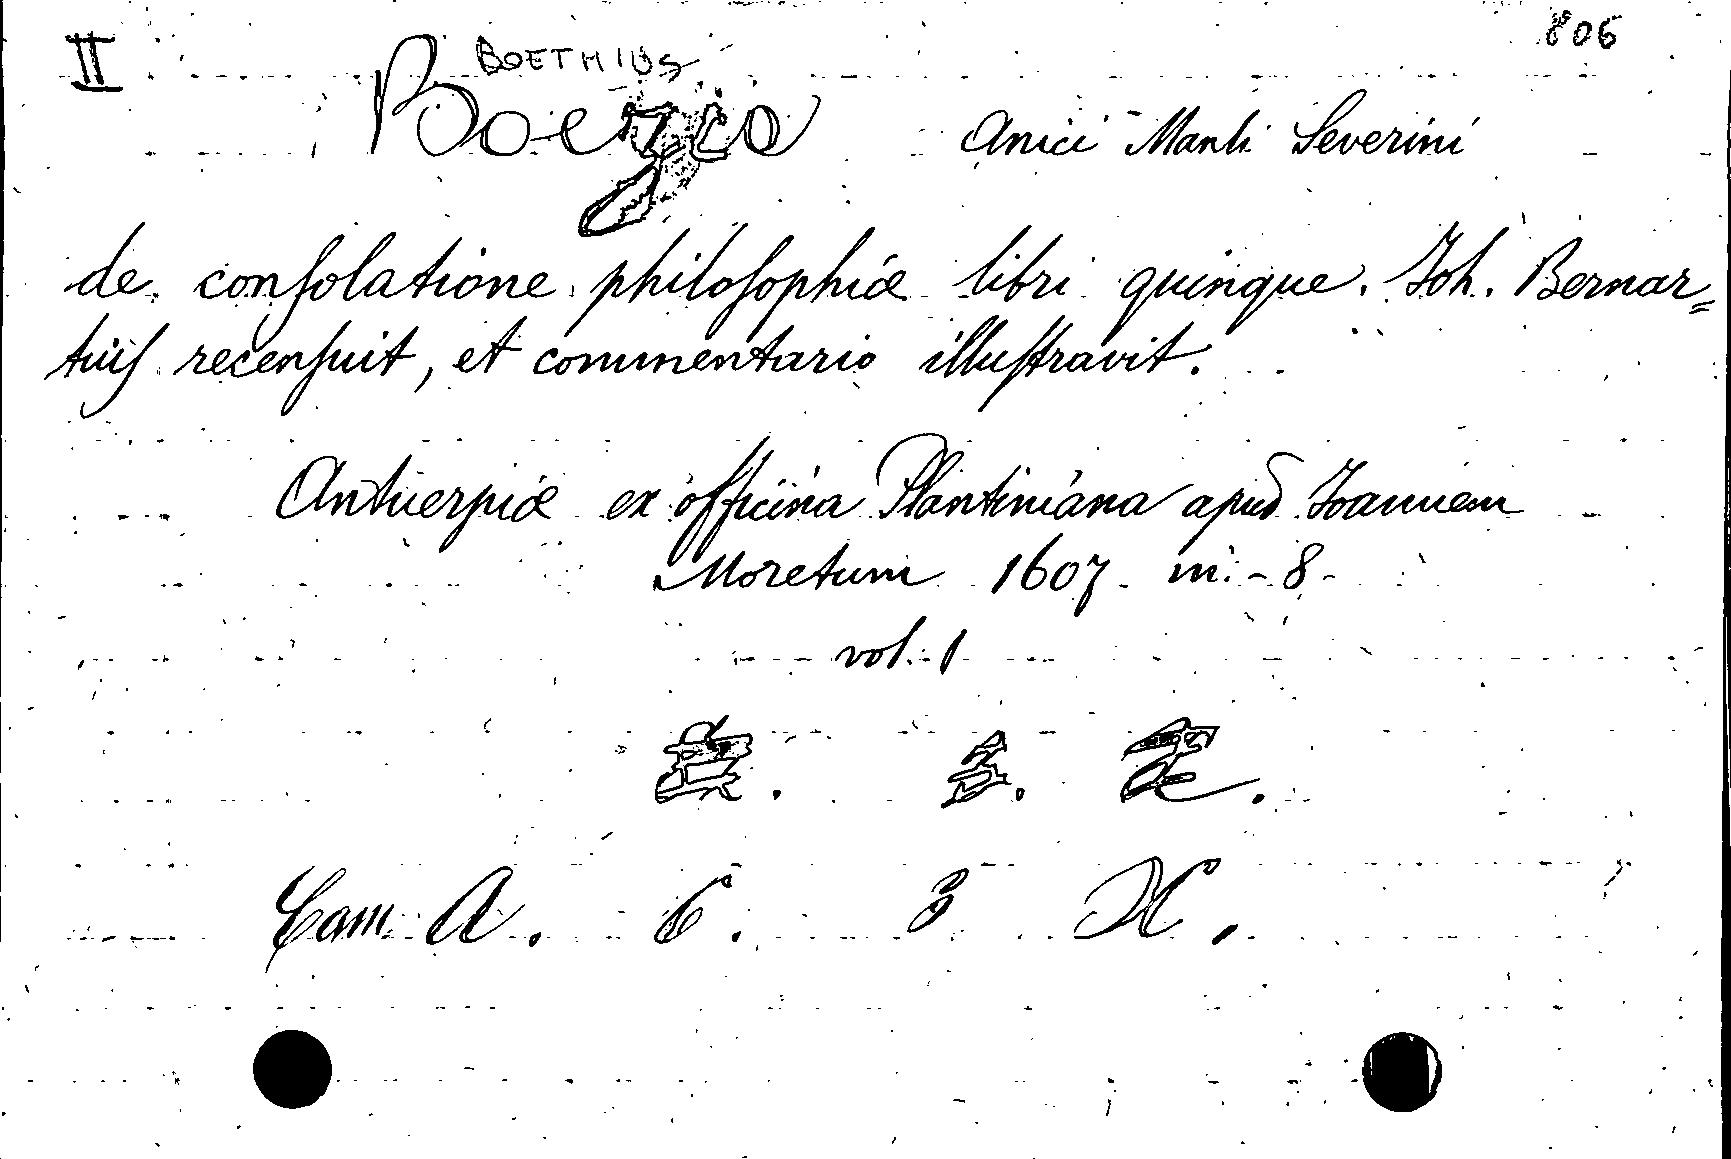 II
806
BOETHIUS
Boezio Anici Manli Severini
de consolatione philosophiæ libri quinque. Joh. Bernar=
tius recensuit, et commentario illustravit.
Antuerpiæ ex officina Plantiniana apud Joannem
Moretum 1607 in-8-
vol. 1
Cam A. 6. 3 X.